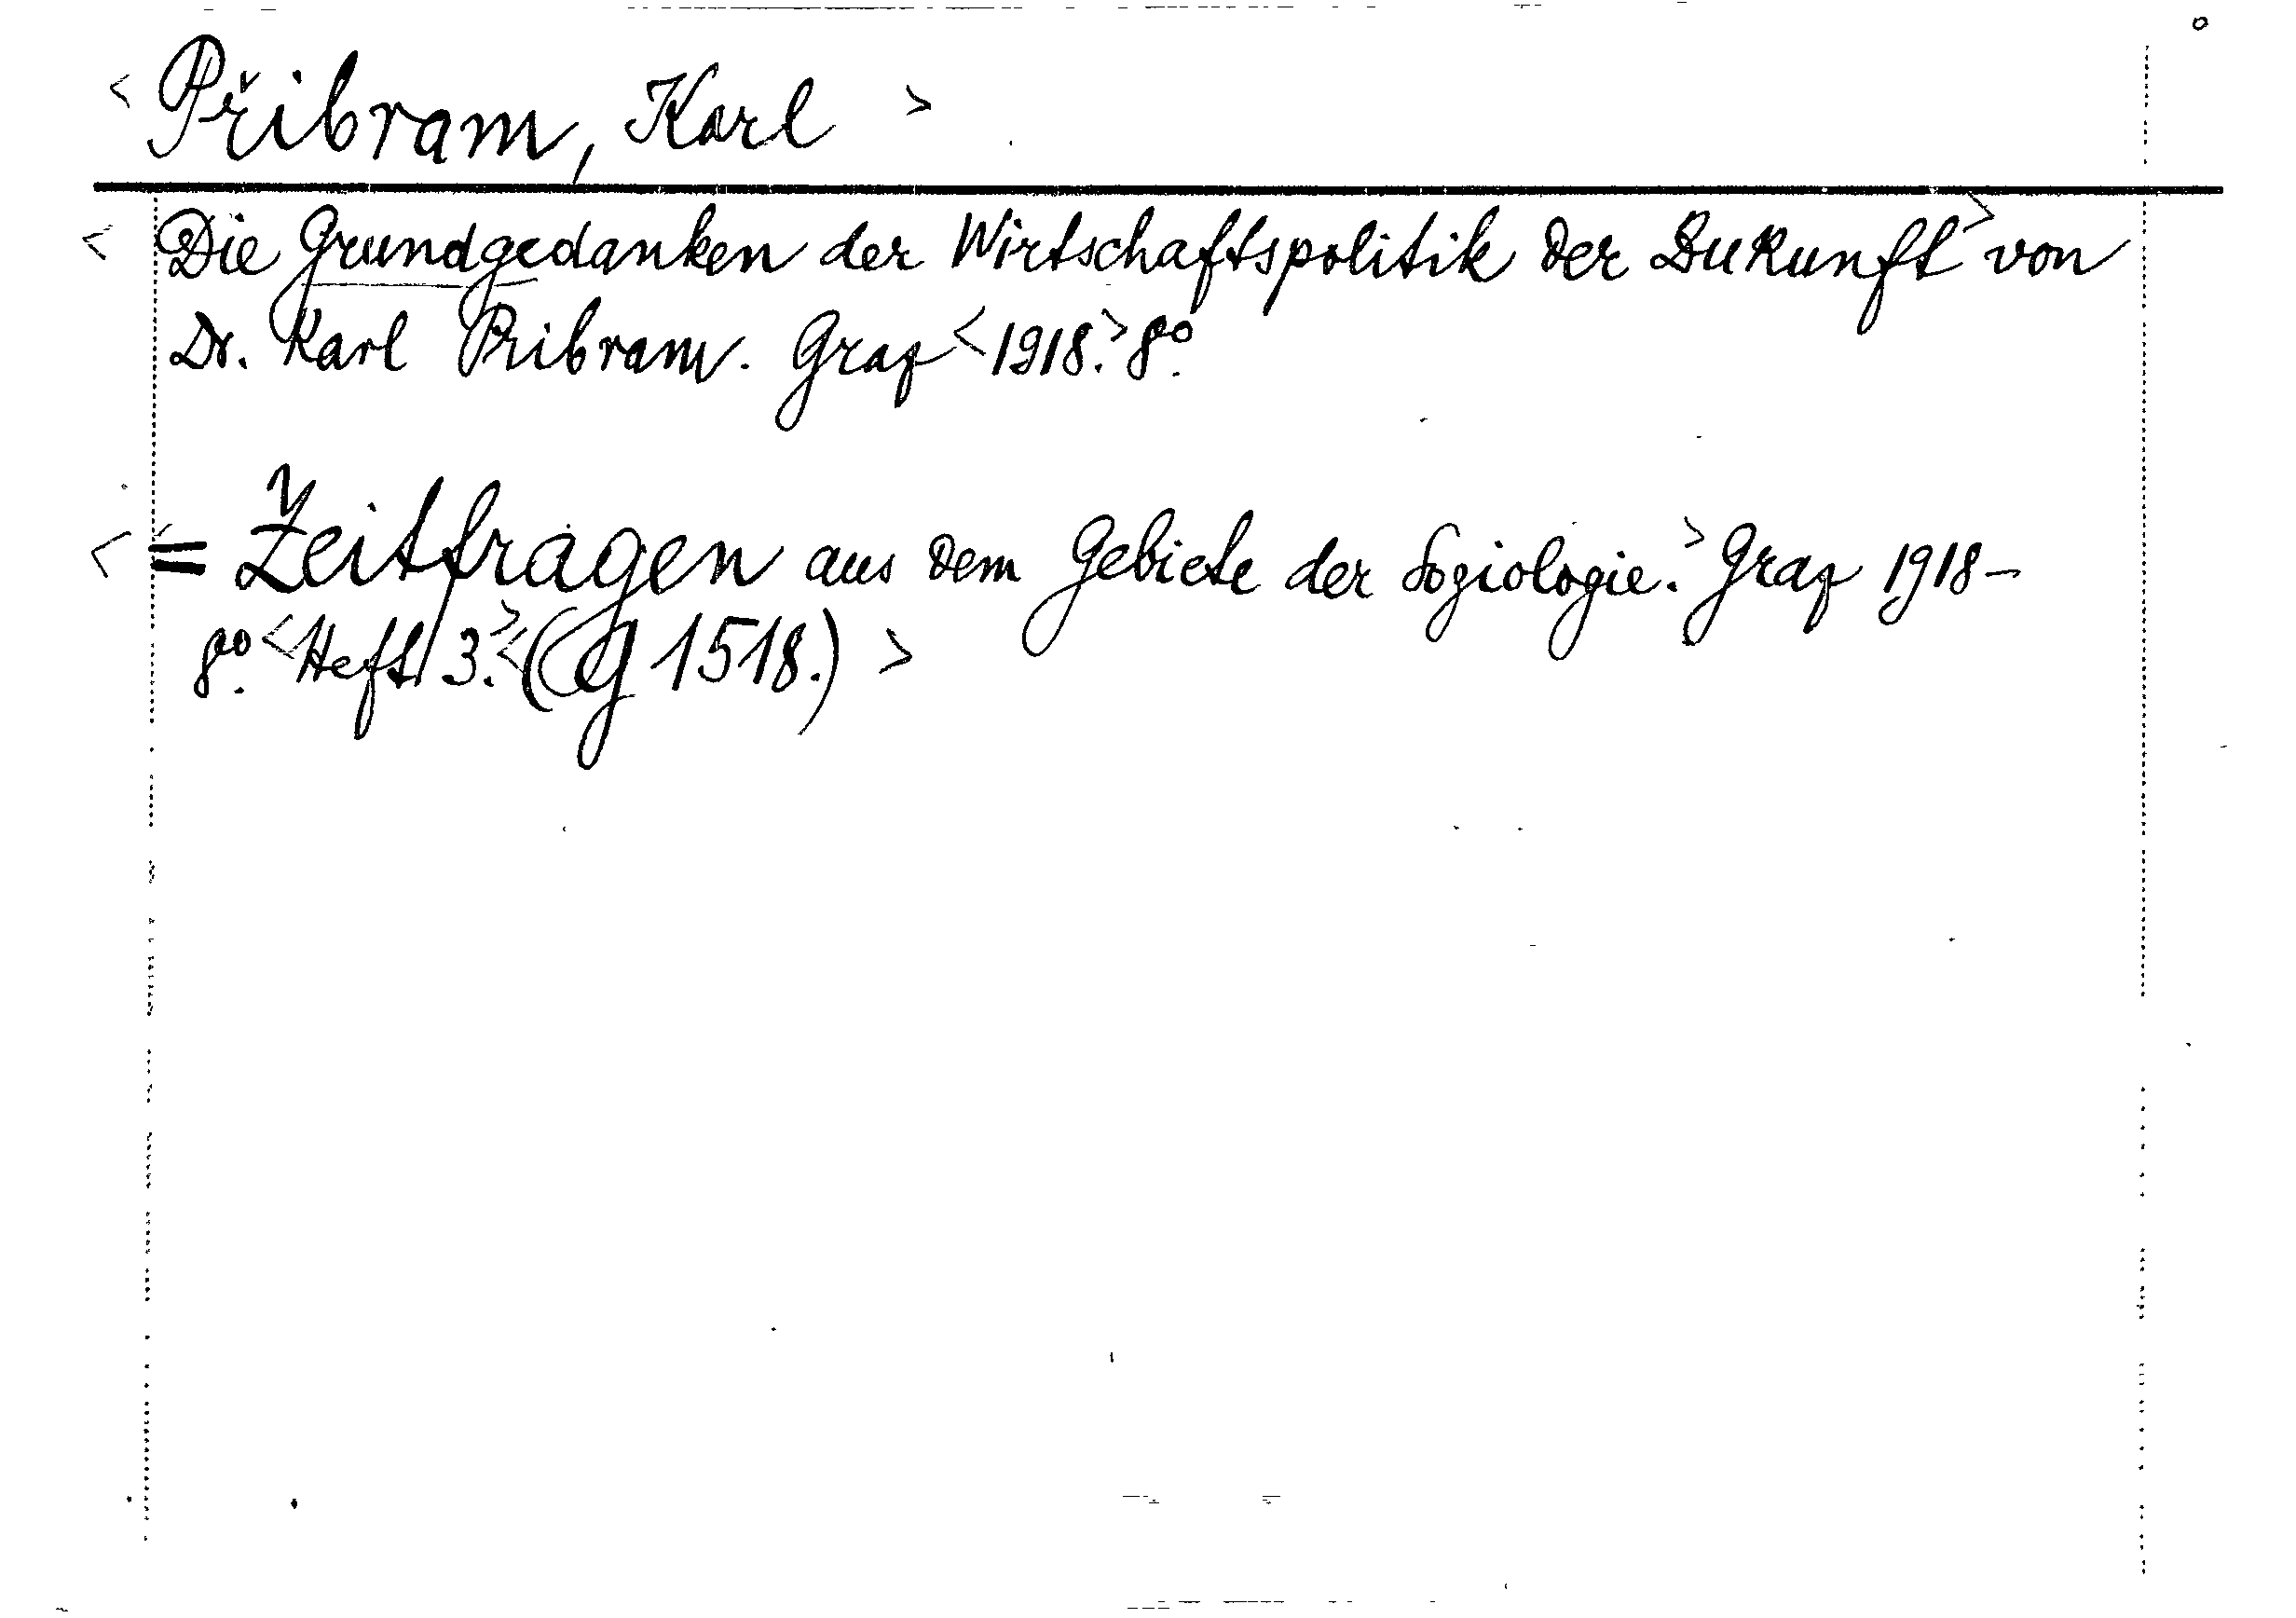 < Přibram, Karl >
< Die Grundgedanken der Wirtschaftspolitik der Zukunft > von
Dr. Karl Pribram. Graz < 1918. > 8°.
< = Zeitfragen aus dem Gebiete der Soziologie. > Graz 1918-
8°. < Heft 3. > < (G 1518.) >